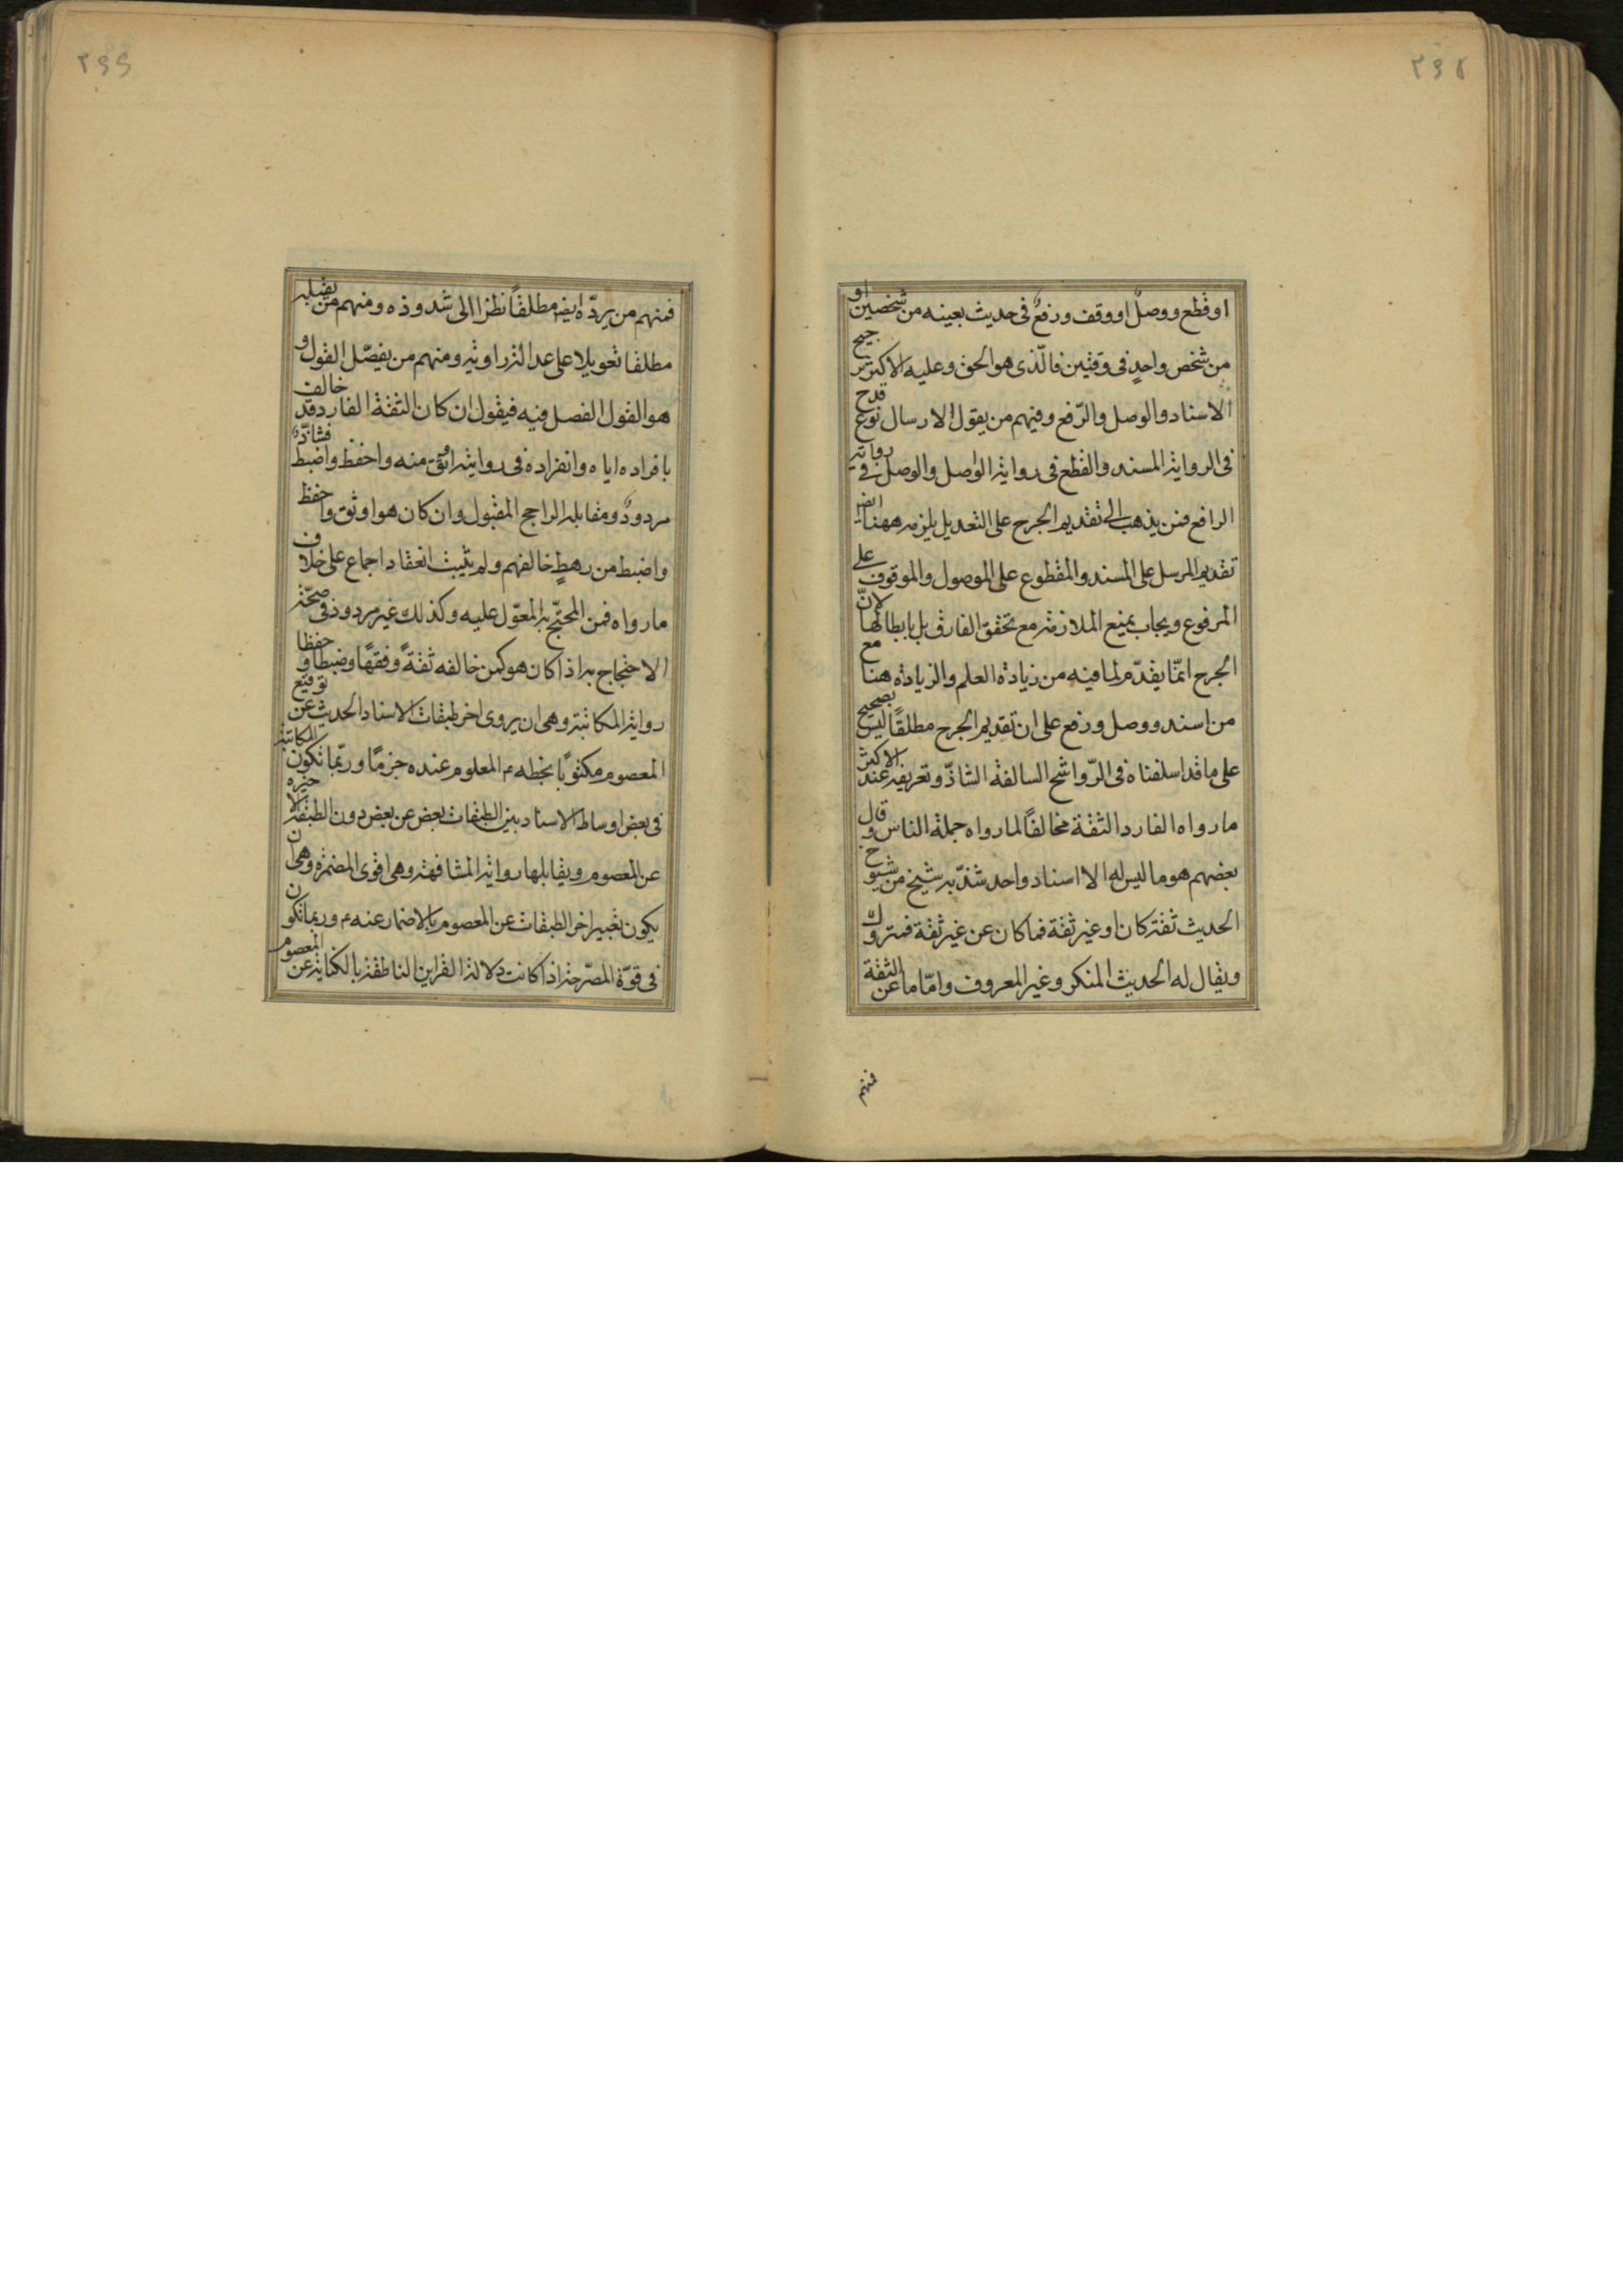 ٢٩٨
او قطع ووصل او وقف ورفع فى حديث بعينه من شخصين او
من شخص واحد فى وقتين فالّذى هو الحق وعليه الاكثر ترجيح
الاسناد والوصل والرّفع وفيهم من يقول الارسال نوع قدح
فى الرواية المسند والقطع فى رواية الواصل والوصل فى رواية
الرافع فمن يذهب الى تقديم الجرح على التعديل يلزمه ههنا ايضا
تقديم المرسل على المسند والمقطوع على الموصول والموقوف على
المرفوع ويجاب بمنع الملازمة مع تحقق الفارق بل بابطالها لانّ
الجرح انمّا يقدّم لما فيه من زيادة العلم والزيادة هنا مع
من اسند ووصل ورفع على ان تقديم الجرح مطلقاً ليس بصحيح
على ما قد اسلفناه فى الرّواشح السالفة الشاذّ وتعريفه عند الاكثر
ما رواه الفارد الثقة مخالفاً لما رواه جملة الناس وقال
بعضهم هو ما ليس له الا اسناد واحد شذّ به شيخ من شيوخ
الحديث ثقة كان او غير ثقة فما كان عن غير ثقة فمتروك
ويقال له الحديث المنكر وغير المعروف وامّا ما عن الثقة
فمنهم
٢٩٩
فمنهم من يردّه ايضا مطلقاً نظرا الى شذوذه ومنهم من يقبله
مطلقا تعويلا على عدالة راويه ومنهم من يفصّل القول و
هو القول الفصل فيه فيقول ان كان الثقة الفارد قد خالف
بافراده اياه وانفراده فى روايته اوثق منه واحفظ واضبط فشاذّ
مردود ومقابله الراجح المقبول وان كان هو اوثق واحفظ
واضبط من رهط خالفهم ولم يثبت انعقاد اجماع على خلاف
ما رواه فمن المحتجّ به المعوّل عليه وكذلك غير مردود فى صحّة
الاحتجاج به اذا كان هو كمن خالفه ثقةً وفقهاً وضبطا وحفظا
رواية المكاتبة وهى ان يروى اخر طبقات الاسناد الحديث عن توقيع
المعصوم مكتوبًا بخطه ع المعلوم عنده جزمًا وربّما تكون المكاتبة
فى بعض اوساط الاسناد بين الطبقات بعض عن بعض دون الطبقة الاخيرة
عن المعصوم ويقابلها رواية المشافهة وهى اقوى المضمرة وهى ان
يكون تعبير اخر الطبقات عن المعصوم بالاضمار عنه ع وربما تكون
فى قوّة المصرّحة اذا كانت دلالة القراين الناطقة بالكناية عن المعصوم